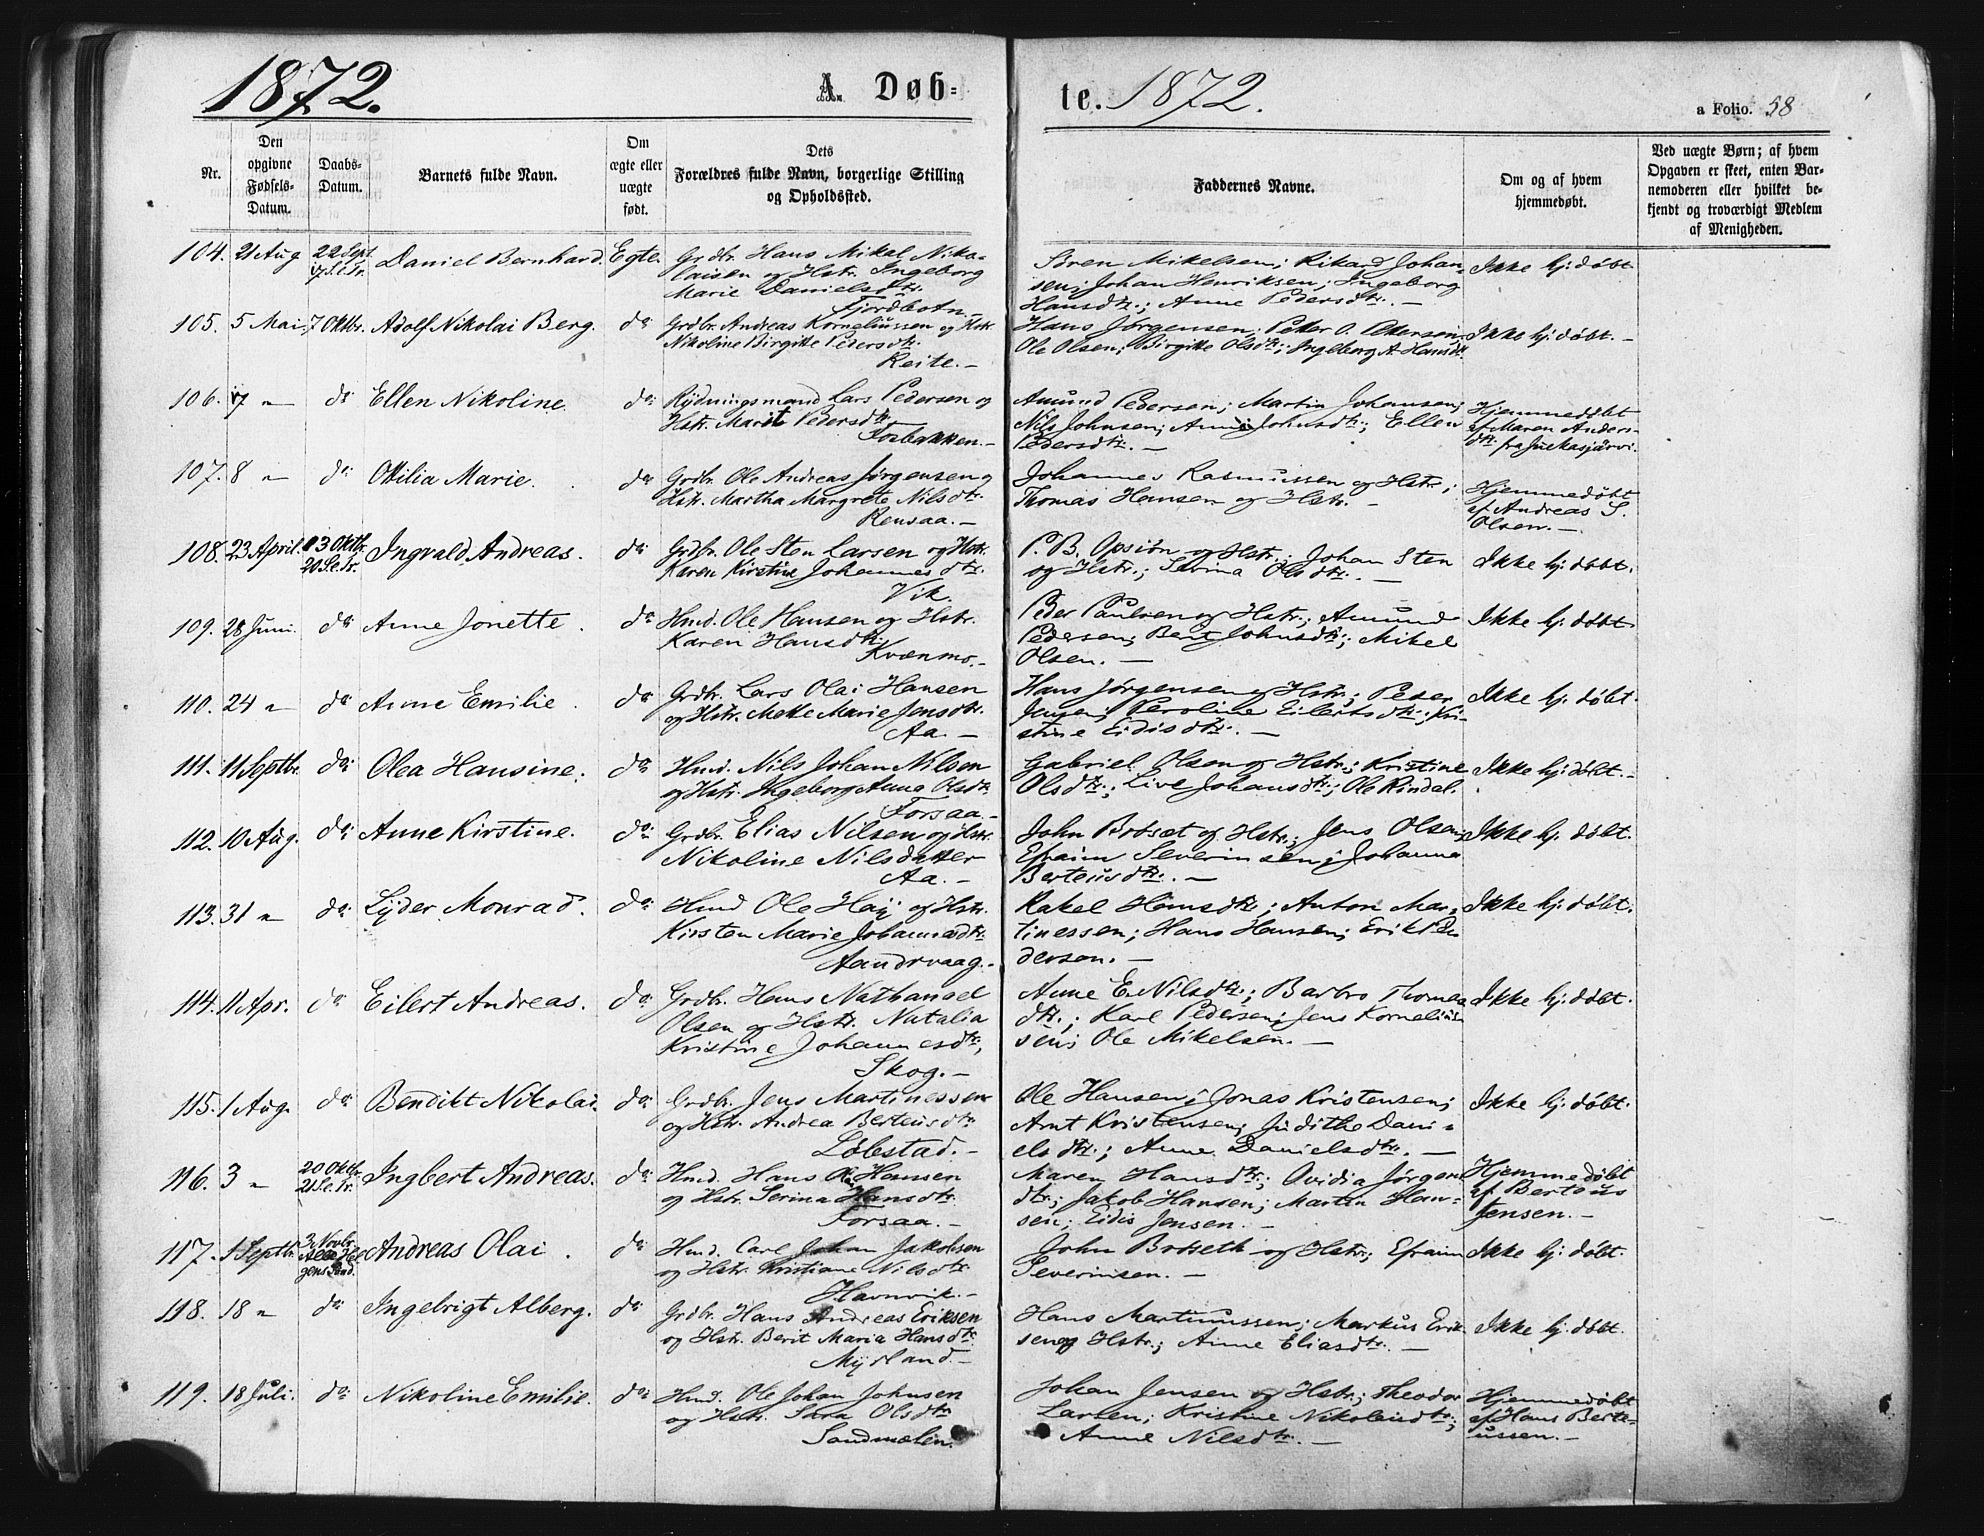 1872. A. Døb= te. 1872. a Folio. 58
Nr. | Den opgivne Fødsels-Datum. | Daabs-Datum. | Barnets fulde Navn. | Om ægte eller uægte født. | Dets Forældres fulde Navn, borgerlige Stilling og Opholdssted. | Faddernes Navne. | Om og af hvem hjemmedøbt. | Ved uægte Børn; af hvem Opgaven er skeet, enten Barnemoderen eller hvilket bekjendt og troværdigt Medlem af Menigheden.
104. 21 Aug 22 Sept. Daniel Bernhard. Egte. Grdbr. Hans Mikal Niko-
laisen og Hstr. Ingeborg
Marie Danielsdtr.
Fjordbotn.-
Søren Mikelsen; Rikard Johan-
sen; Johan Henriksen; Ingeborg
Hansdtr.; Anne Pedersdtr. -
Ikke hj: døbt.
105. 5 Mai, 7 Oktbr. Adolf Nikolai Berg. do Grdbr. Andreas Korneliussen og Hstr.
Nikoline Birgitte Pedersdtr.
Reite. -
Hans Jørgensen; Peter O. Petersen;
Ole Olsen; Birgitte Olsdtr.; Ingeborg A. Hansdtr.
Ikke hj: døbt. -
106. 17 " do Ellen Nikoline. do Rydningsmand Lars Pedersen og
Hstr. Marit Pedersdtr.
Fosbakken. -
Amund Pedersen; Martin Johansen;
Nils Johnsen; Anne Johnsdtr.; Ellen
Pedersdtr. -
Hjemmedøbt
af Maren Anders-
dtr. fra Jukkasjärvi.
107. 8 " do Otilia Marie. do Grdbr. Ole Andreas Jørgensen og
Hstr. Martha Margrete Nilsdtr.
Rensaa. -
Johannes Rasmussen og Hstr.;
Thomas Hansen og Hstr. -
Hjemmedøbt
af Andreas S.
Olsen. -
108. 23 April. 13 Oktbr.
20 S.e.Tr. Ingvald Andreas. do Grdbr. Ole Sten Larsen og Hstr.
Karen Kirstine Johannesdtr.
Vik.
P. B. Opsiøn og Hstr.; Johan Sten
og Hstr.; Serina Olsdtr. -
Ikke hj: døbt.
109. 28 Juni. do Anne Jonette. do Hmd. Ole Hansen og Hstr.
Karen Hansdtr.
Kvænmo. -
Peder Paulsen og Hstr.; Amund
Pedersen; Berit Johnsdtr.; Mikel
Olsen. -
Ikke hj: døbt.
110. 24 " do Anne Emilie. do Grdbr. Lars Olai Hansen
og Hstr. Mette Marie Jensdtr.
Aa. -
Hans Jørgensen og Hstr.; Peder
Jensen; Karoline Eilertsdtr.; Kri-
stine Eidisdtr. -
Ikke hj. døbt.
111. 11 Septbr. do Olea Hansine. do Hmd. Nils Johan Nilsen
og Hstr. Ingeborg Anna Olsdtr.
Forsaa. -
Gabriel Olsen og Hstr.; Kristine
Olsdtr.; Live Johansdtr.; Ole Rindal.
Ikke hj: døbt. -
112. 10 Aug. do Anne Kirstine. do Grdbr. Elias Nilsen og Hstr.
Nikoline Nilsdatter
Aa. -
John Brøset og Hstr.; Jens Olsen;
Efraim Severinsen; Johanna
Berteusdtr. -
Ikke hj. døbt.
113. 31 " do Lyder Monrad. do Hmd Ole Høij og Hstr.
Kirsten Marie Johannesdtr.
Aandrvaag. -
Rakel Hansdtr.; Anton Mar-
tinessen; Hans Hansen; Erik Pe-
dersen. -
Ikke hj: døbt.
114. 11 Apr. do Eilert Andreas. do Grdbr. Hans Nathanael
Olsen og Hstr. Natalia
Kristine Johannesdtr.
Skog. -
Anne E. Nilsdtr.; Barbro Thomas-
dtr.; Karl Pedersen; Jens Kornelius-
sen; Ole Mikelsen. -
Ikke hj: døbt.
115. 1 Aug. do Bendikt Nikolai. do Grdbr. Jens Martinessen
og Hstr. Andrea Berteusdtr.
Løbstad. -
Ole Hansen; Jonas Kristensen;
Arnt Kristensen; Judithe Dani-
elsdtr.; Anne Danielsdtr. -
Ikke hj. døbt.
116. 3 " 20 Oktbr.
21 S.e.Tr. Ingbert Andreas. do Hmd. Hans Hansen
og Hstr. Serina Hansdtr.
Forsaa. -
Maren Hansdtr.; Ovidia Jørgens-
dtr.; Jakob Hansen; Martin Han-
sen; Eidis Jensen. -
Hjemmedøbt
af Berteus
Jensen. -
117. 1 Septbr. 3 Novbr.
Alle Hel-
gens Sønd. Andreas Olai. do Hmd. Carl Johan Jakobsen
og Hstr. Kristiane Nilsdtr.
Havnvik. -
John Brøseth og Hstr.; Efraim
Severinsen. -
Ikke hj: døbt.
118. 18 " do Ingebrigt Alberg. do Grdbr. Hans Andreas Eriksen
og Hstr. Berit Maria Hansdtr.
Myrland. -
Hans Martinussen; Markus Erik-
sen og Hstr.; Anne Eliasdtr. -
Ikke hj. døbt.
119. 18 Juli. do Nikoline Emilie. do Hmd. Ole Johan Johnsen
og Hstr. Sara Olsdtr.
Sandmælen.
Johan Jensen og Hstr.; Theodor
Larsen; Kristine Nikolaisdtr.;
Anne Nilsdtr. -
Hjemmedøbt
af Hans Berte-
ussen. -